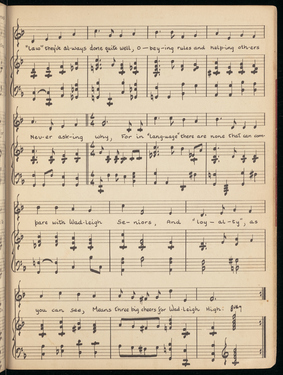 "Law" they've al-ways done quite well, O-bey-ing rules and help-ing oth-ers
Nev-er ask-ing why, For in "Lang-uage" there are none that can com-
pare with Wad-leigh Se-niors, And "loy-al-ty", as
you can see, Means three big cheers for Wad-leigh High!